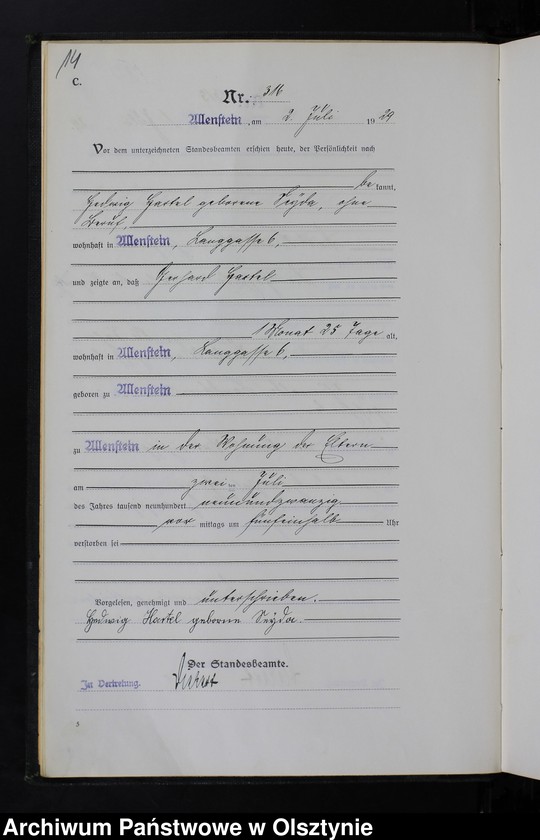 14
C.
Nr. 316
Allenstein, am 2. Juli 1929
Vor dem unterzeichneten Standesbeamten erschien heute, der Persönlichkeit nach
be kannt,
Hedwig Hartel geborene Seyda, ohne
Beruf,
wohnhaft in Allenstein, Langgasse 6,
und zeigte an, daß Gerhard Hartel
1 Monat 25 Tage alt,
wohnhaft in Allenstein, Langgasse 6,
geboren zu Allenstein
zu Allenstein in der Wohnung der Eltern
am zwei Juli
des Jahres tausend neunhundert neunundzwanzig
vor mittags um fünfeinhalb Uhr
verstorben sei
Vorgelesen, genehmigt und unterschrieben.
Hedwig Hartel geborene Seyda
Der Standesbeamte.
In Vertretung.
5
Archiwum Państwowe w Olsztynie